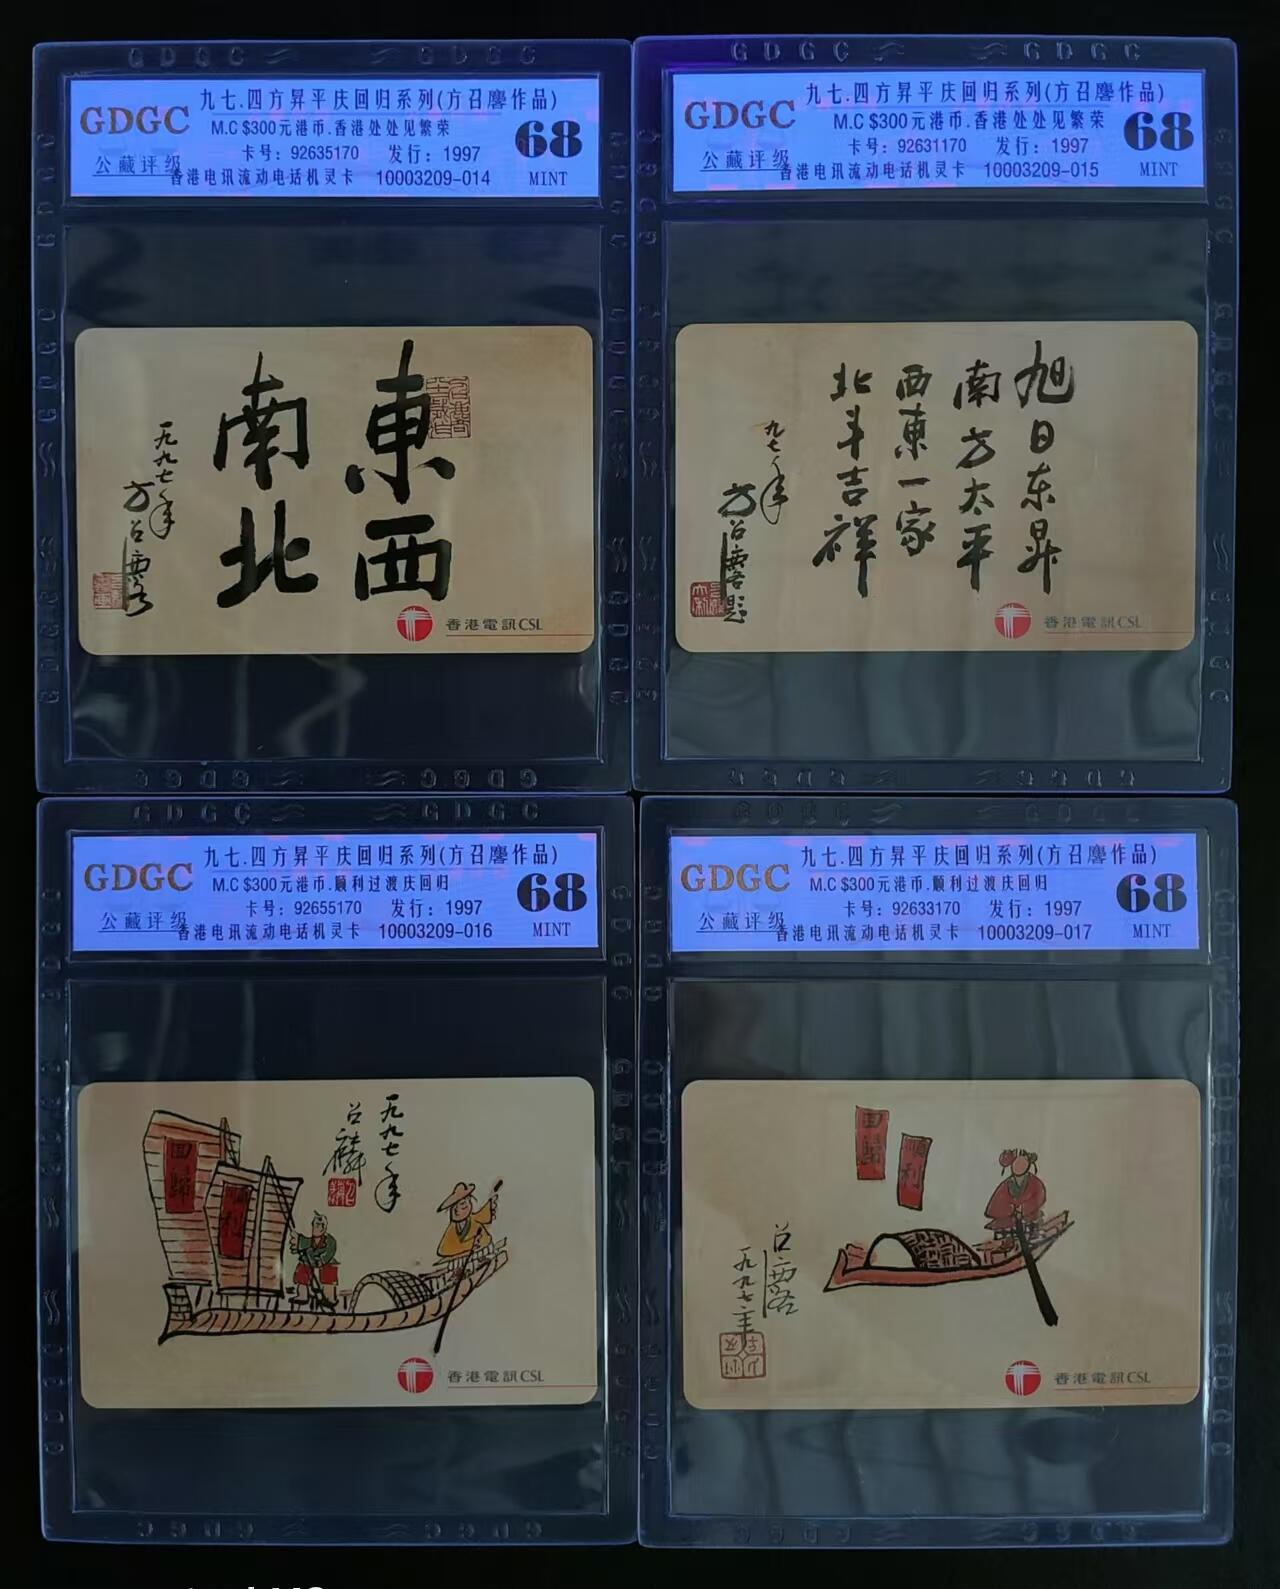 GDGC GDGC
GDGC
公藏评级
九七.四方昇平庆回归系列(方召麐作品)
M.C $300元港币.香港处处见繁荣
卡号：92635170 发行：1997
香港电讯流动电话机灵卡 10003209-014
68
MINT
東西
南北
一九九七年
方召麐
香港電訊CSL
GDGC GDGC
GDGC
公藏评级
九七.四方昇平庆回归系列(方召麐作品)
M.C $300元港币.香港处处见繁荣
卡号：92631170 发行：1997
香港电讯流动电话机灵卡 10003209-015
68
MINT
旭日东昇
南方太平
西東一家
北斗吉祥
九七年
方召麐题
香港電訊CSL
GDGC GDGC
GDGC
公藏评级
九七.四方昇平庆回归系列(方召麐作品)
M.C $300元港币.顺利过渡庆回归
卡号：92655170 发行：1997
香港电讯流动电话机灵卡 10003209-016
68
MINT
一九九七年
召麐
回歸
順利
香港電訊CSL
GDGC
公藏评级
九七.四方昇平庆回归系列(方召麐作品)
M.C $300元港币.顺利过渡庆回归
卡号：92633170 发行：1997
香港电讯流动电话机灵卡 10003209-017
68
MINT
回歸
順利
召麐
一九九七年
香港電訊CSL